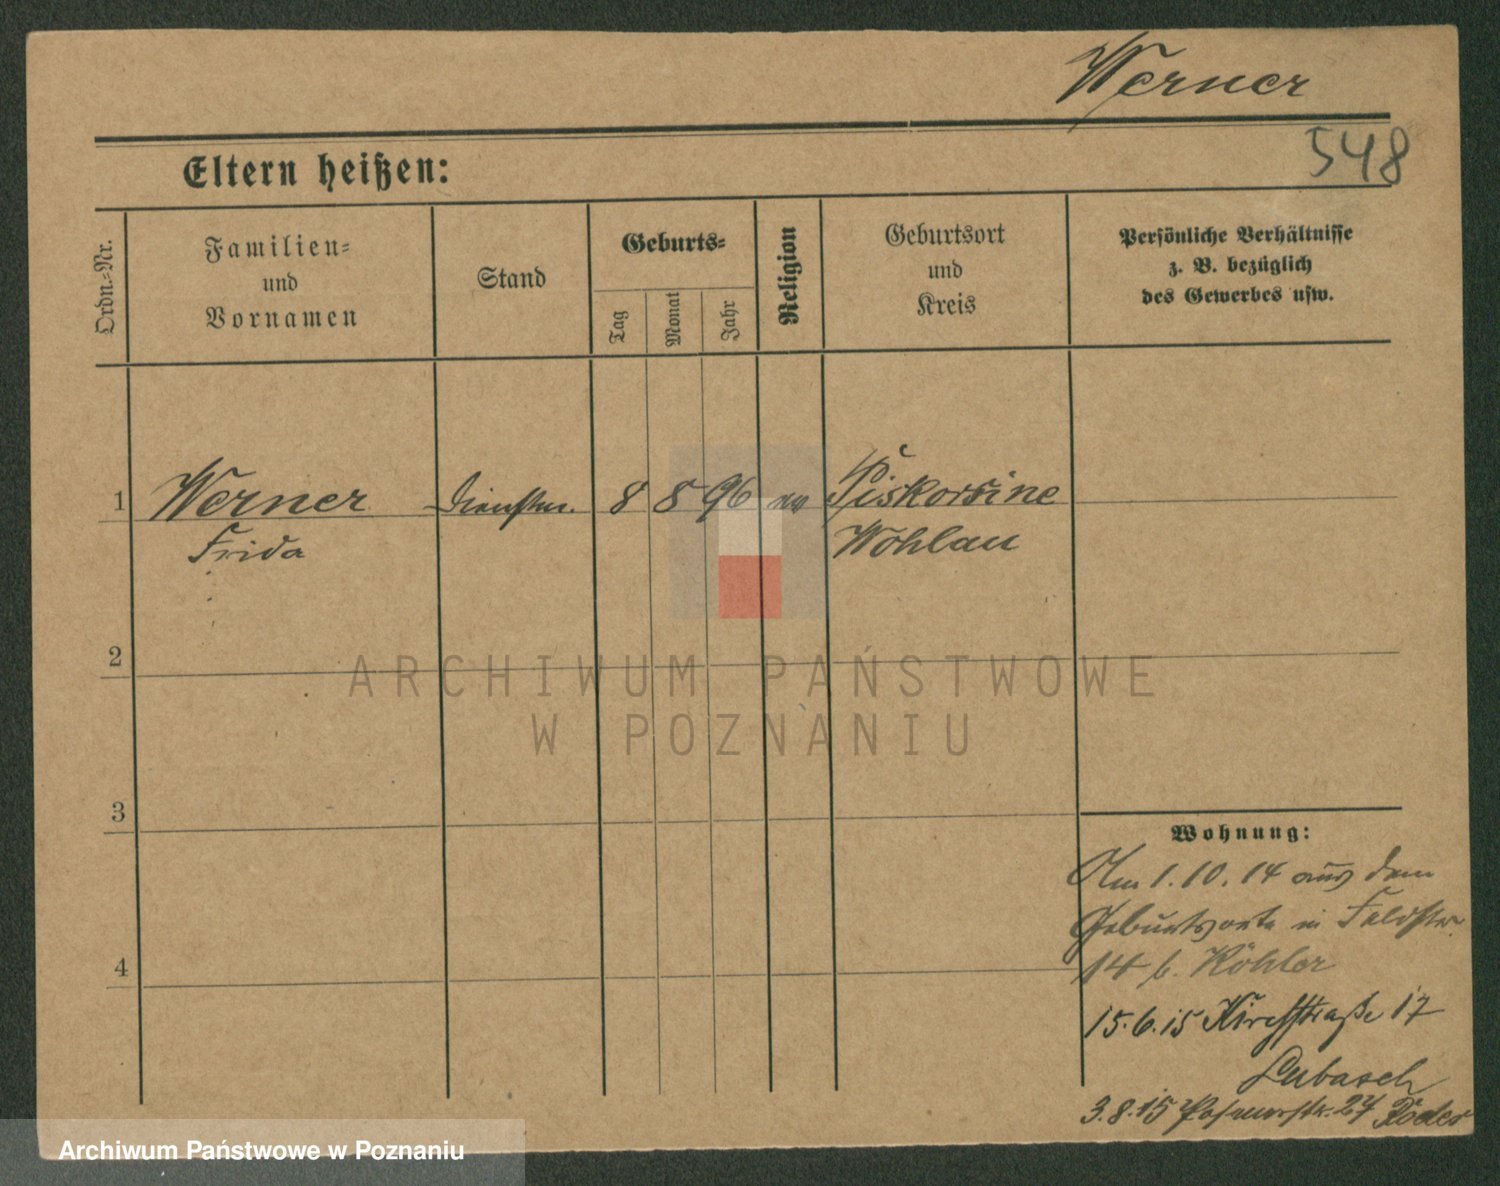 Werner
548
Eltern heißen:
Ordn.-Nr.
Familien-
und
Vornamen
Stand
Geburts-
Tag
Monat
Jahr
Religion
Geburtsort
und
Kreis
Persönliche Verhältnisse
z. B. bezüglich
des Gewerbes usw.
1
Werner
Frida
Dienstm.
8
8
96
ev
Piskorsine
Wohlau
2
3
4
Wohnung:
Am 1.10.14 aus dem
Geburtsorte in Feldstr.
14 b. Köhler
15.6.15 Kirchstraße 17
Lubasch
3.8.15 Posenerstr. 27 Röder
ARCHIWUM PAŃSTWOWE
W POZNANIU
Archiwum Państwowe w Poznaniu